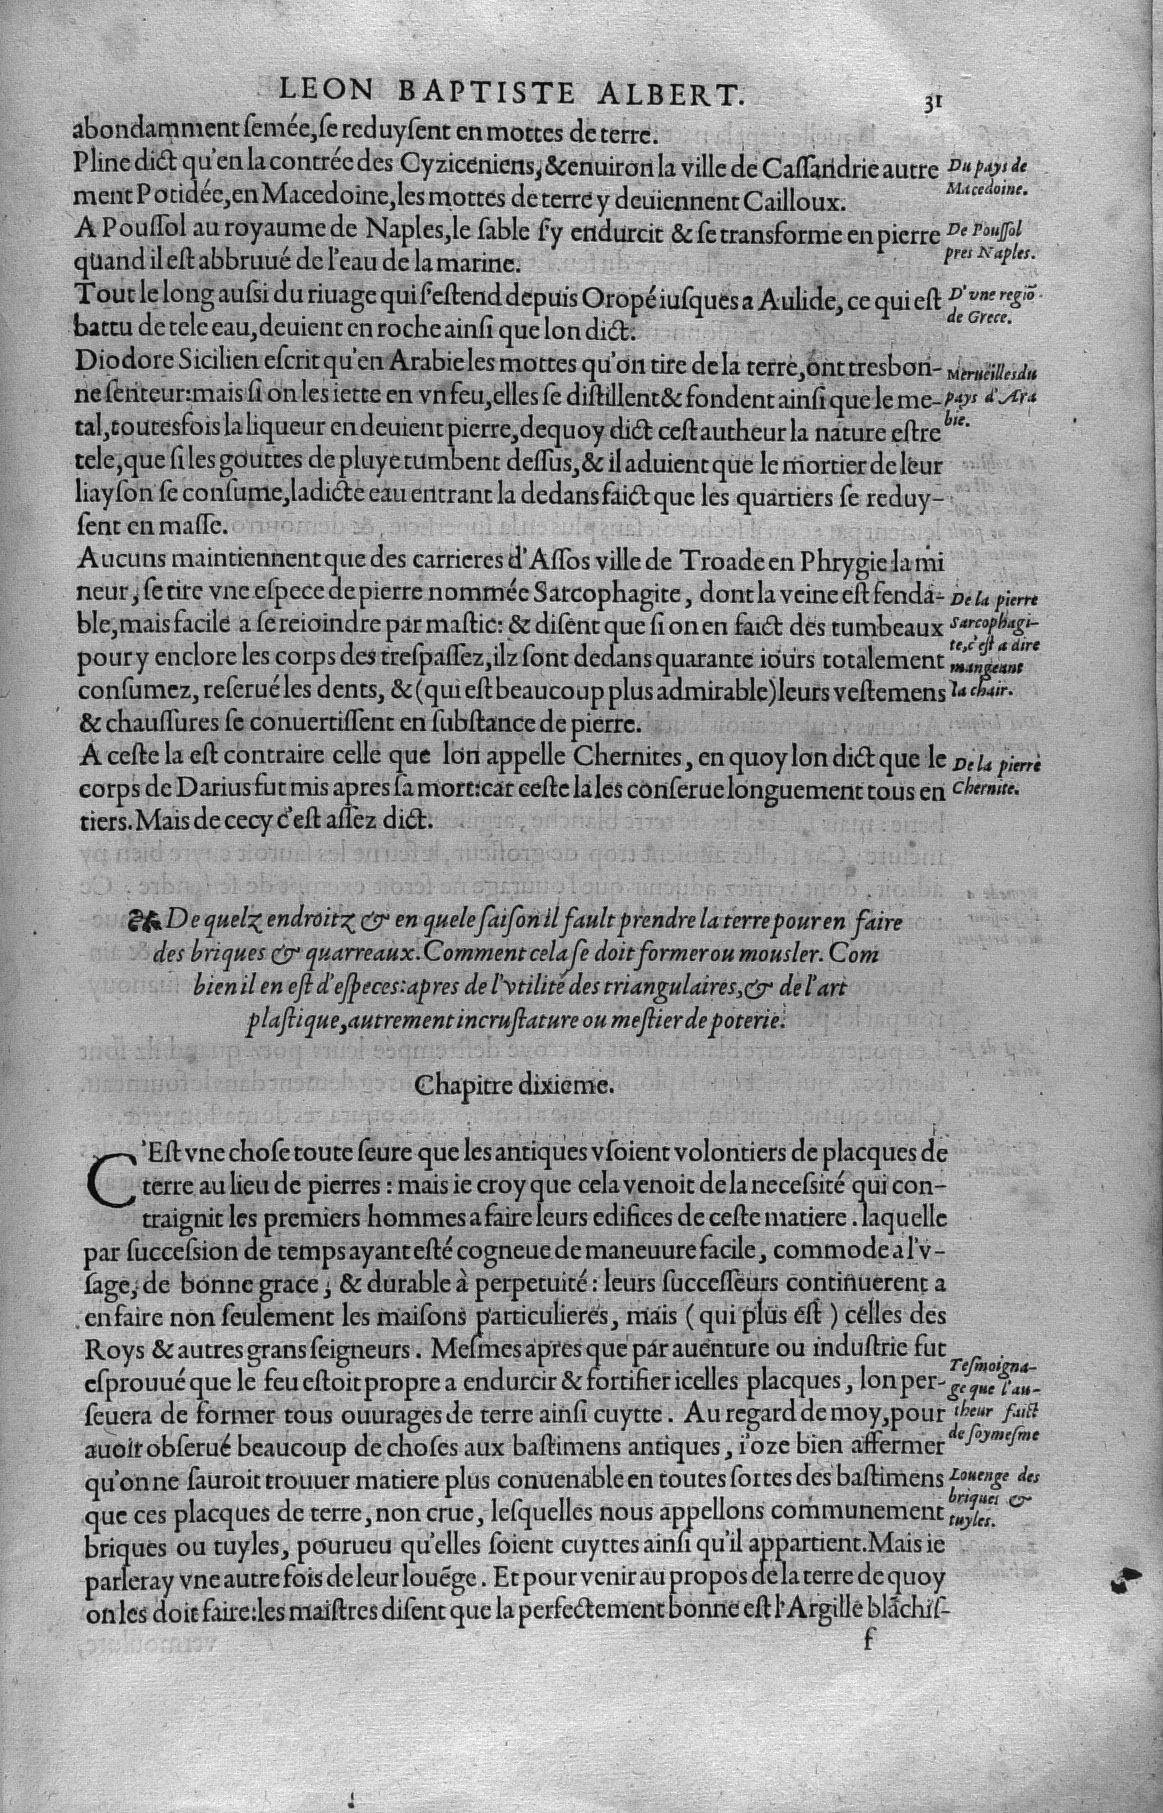 LEON BAPTISTE ALBERT. 31
abondamment semée, se reduysent en mottes de terre.
Pline dict qu'en la contrée des Cyziceniens, & enuiron la ville de Cassandrie autre
ment Potidée, en Macedoine, les mottes de terre y deuiennent Cailloux.
Du pays de
Macedoine.
A Poussol au royaume de Naples, le sable s'y endurcit & se transforme en pierre
quand il est abbruué de l'eau de la marine.
De Poussol
pres Naples.
Tout le long aussi du riuage qui s'estend depuis Oropé iusques a Aulide, ce qui est
battu de tele eau, deuient en roche ainsi que lon dict.
D'vne regiō
de Grece.
Diodore Sicilien escrit qu'en Arabie les mottes qu'on tire de la terre, ont tresbon-
ne senteur: mais si on les iette en vn feu, elles se distillent & fondent ainsi que le me-
tal, toutesfois la liqueur en deuient pierre, dequoy dict cest autheur la nature estre
tele, que si les gouttes de pluye tumbent dessus, & il aduient que le mortier de leur
liayson se consume, ladicte eau entrant la dedans faict que les quartiers se reduy-
sent en masse.
Merueilles du
pays d'Ara
bie.
Aucuns maintiennent que des carrieres d'Assos ville de Troade en Phrygie la mi
neur, se tire vne espece de pierre nommée Sarcophagite, dont la veine est fenda-
ble, mais facile a se reioindre par mastic: & disent que si on en faict des tumbeaux
pour y enclore les corps des trespassez, ilz sont dedans quarante iours totalement
consumez, reserué les dents, & (qui est beaucoup plus admirable) leurs vestemens
& chaussures se conuertissent en substance de pierre.
De la pierre
Sarcophagi-
te, c'est a dire
mangeant
la chair.
A ceste la est contraire celle que lon appelle Chernites, en quoy lon dict que le
corps de Darius fut mis apres sa mort: car ceste la les conserue longuement tous en
tiers. Mais de cecy c'est assez dict.
De la pierre
Chernite.
De quelz endroitz & en quele saison il fault prendre la terre pour en faire
des briques & quarreaux. Comment cela se doit former ou mousler. Com
bien il en est d'especes: apres de l'vtilité des triangulaires, & de l'art
plastique, autrement incrustature ou mestier de poterie.
Chapitre dixieme.
C'Est vne chose toute seure que les antiques vsoient volontiers de placques de
terre au lieu de pierres: mais ie croy que cela venoit de la necessité qui con-
traignit les premiers hommes a faire leurs edifices de ceste matiere. laquelle
par succession de temps ayant esté cogneue de maneuure facile, commode a l'v-
sage, de bonne grace, & durable à perpetuité: leurs successeurs continuerent a
en faire non seulement les maisons particulieres, mais (qui plus est) celles des
Roys & autres grans seigneurs. Mesmes apres que par auenture ou industrie fut
esprouué que le feu estoit propre a endurcir & fortifier icelles placques, lon per-
seuera de former tous ouurages de terre ainsi cuytte. Au regard de moy, pour
auoir obserué beaucoup de choses aux bastimens antiques, i'oze bien affermer
qu'on ne sauroit trouuer matiere plus conuenable en toutes sortes des bastimens
que ces placques de terre, non crue, lesquelles nous appellons communement
briques ou tuyles, pourueu qu'elles soient cuyttes ainsi qu'il appartient. Mais ie
parleray vne autre fois de leur louēge. Et pour venir au propos de la terre de quoy
on les doit faire: les maistres disent que la perfectement bonne est l'Argille blāchis-
Tesmoigna-
ge que l'au-
theur faict
de soymesme
Louenge des
briques &
tuyles.
f